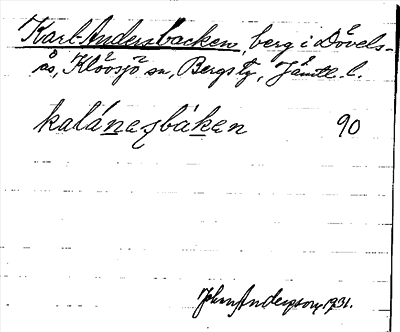 Karl-Andersbacken, berg i Dövels-
ås, Klövsjö sn, Bergs tg, Jämtl. l.
kalánesbáken 90
John Andersson, 1931.